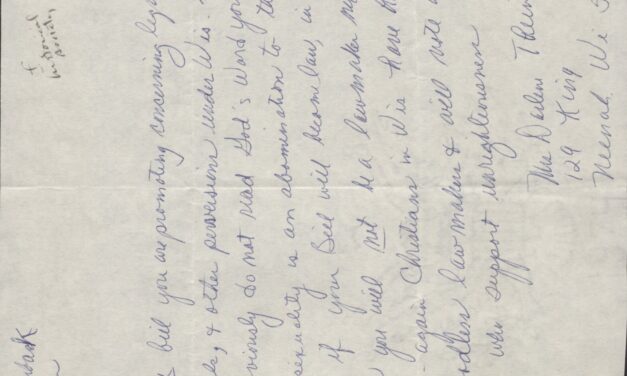 bill you are promoting concerning leg
es, & other perversions under Wis.
viously do not read God's Word you
sexuality is an abomination to the
if your Bill will become law, in
you will not be a lawmaker
-again Christians in Wis have
dless lawmakers & will vote
who support unrighteousness
Mrs Darlene Thein
129 King
Neenah, Wi 5